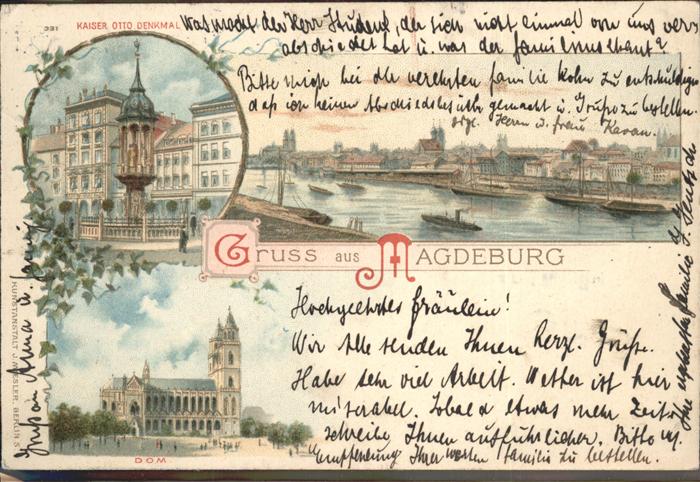 331 KAISER OTTO DENKMAL
Was macht der Herr Student, der sich nicht einmal von uns verabschiedet hat u. was der Familien
Bitte mich bei der verehrten Familie Kohn zu entschuldigen
daß ich keinen Abschiedsbesuch gemacht u. Grüße zu bestellen
Herrn u. Frau
GRUSS AUS MAGDEBURG
Hochgeehrtes Fräulein!
Wir Alle senden Ihnen herzl. Grüße.
Habe sehr viel Arbeit. Wetter ist hier
miserabel. Sobald etwas mehr Zeit
schreibe Ihnen ausführlicher. Bitte
Empfehlung Ihrer werten Familie zu bestellen.
Gruß an Anna u.
KUNSTANSTALT J. MIESLER, BERLIN S.
DOM.